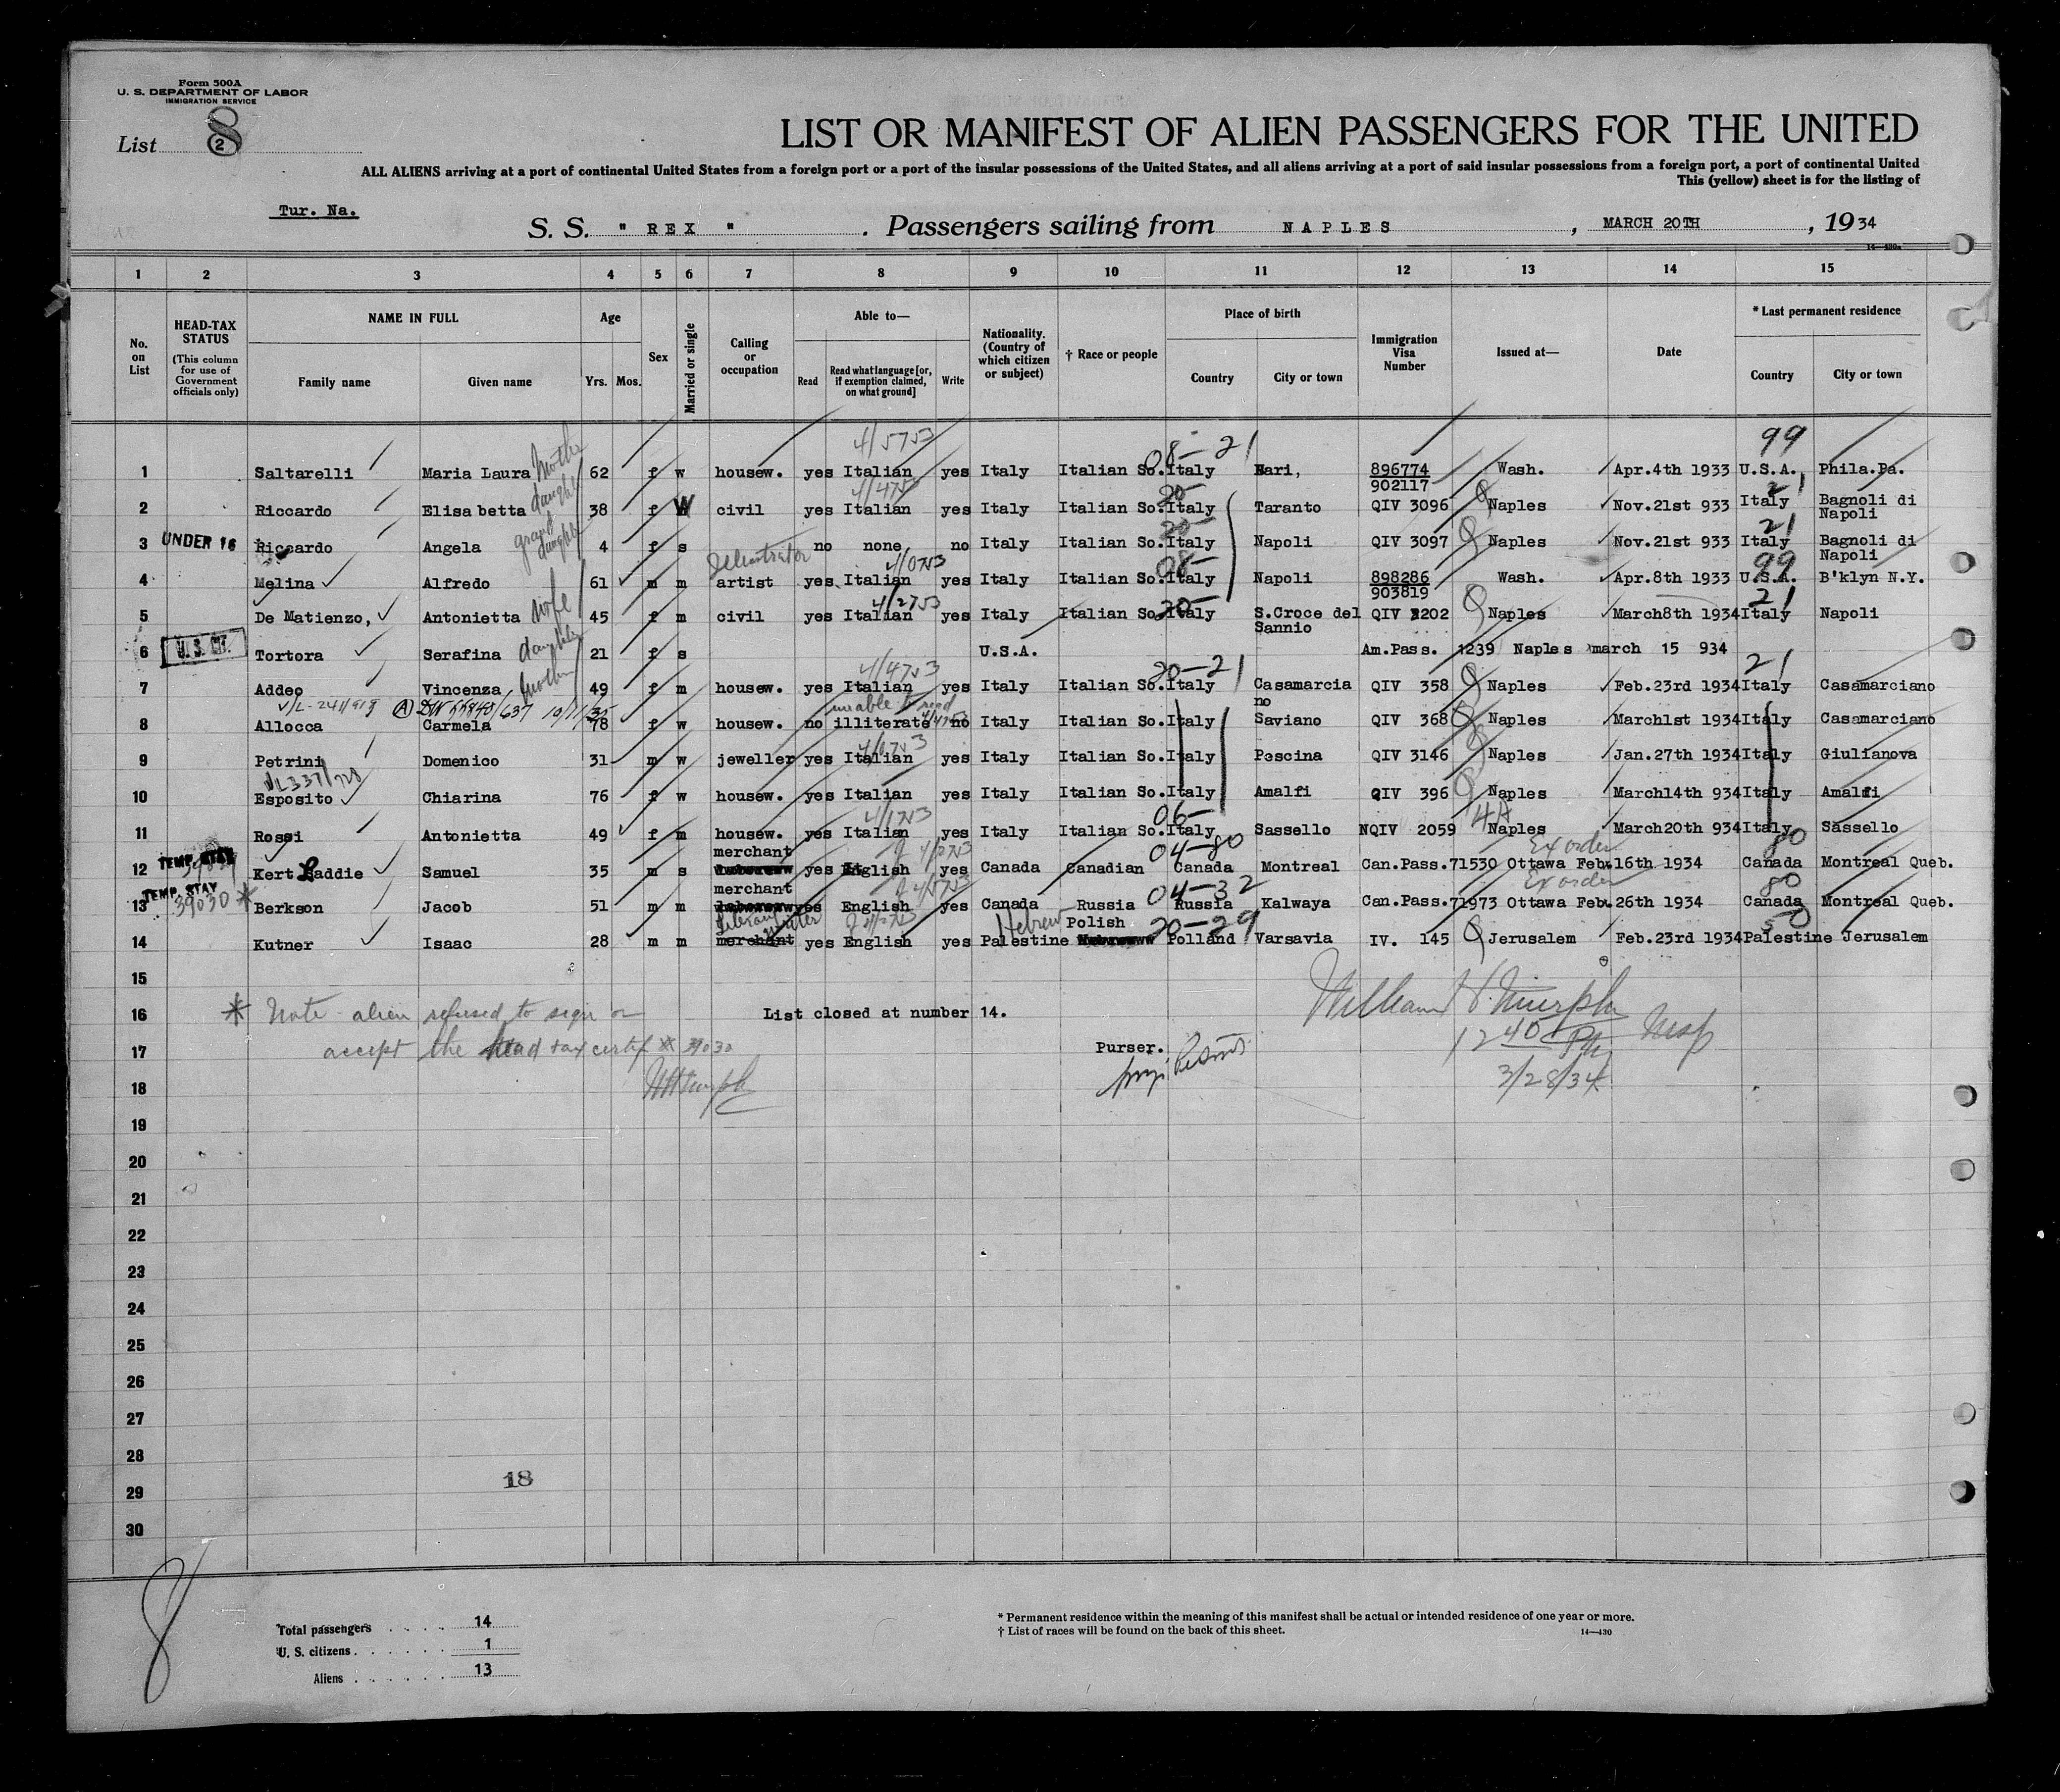 Form 500A
U. S. DEPARTMENT OF LABOR
IMMIGRATION SERVICE
List 8 2
LIST OR MANIFEST OF ALIEN PASSENGERS FOR THE UNITED
ALL ALIENS arriving at a port of continental United States from a foreign port or a port of the insular possessions of the United States, and all aliens arriving at a port of said insular possessions from a foreign port, a port of continental United
This (yellow) sheet is for the listing of
Tur. Na.
S. S. " REX " . Passengers sailing from NAPLES , MARCH 20TH , 1934
14—430a
1 2 3 4 5 6 7 8 9 10 11 12 13 14 15
No. on List
HEAD-TAX STATUS
(This column for use of Government officials only)
NAME IN FULL
Family name Given name
Age
Yrs. Mos.
Sex
Married or single
Calling or occupation
Able to—
Read
Read what language [or, if exemption claimed, on what ground]
Write
Nationality. (Country of which citizen or subject)
† Race or people
Place of birth
Country City or town
Immigration Visa Number
Issued at—
Date
* Last permanent residence
Country City or town
4/5753 08-21 99
1 Saltarelli Maria Laura Mother 62 f w housew. yes Italian yes Italy Italian So. Italy Bari, 896774 902117 Wash. Apr.4th 1933 U.S.A. Phila.Pa.
2 Riccardo Elisabetta daught 38 f W civil yes Italian yes Italy Italian So. Italy Taranto QIV 3096 Naples Nov.21st 933 Italy Bagnoli di Napoli
3 UNDER 16 Riccardo Angela grand daught 4 f s no none no Italy Italian So. Italy Napoli QIV 3097 Naples Nov.21st 933 Italy Bagnoli di Napoli
4 Melina Alfredo 61 m m artist yes Italian yes Italy Italian So. Italy Napoli 898286 903819 Wash. Apr.8th 1933 U.S.A. B'klyn N.Y.
5 De Matienzo, Antonietta wife 45 f m civil yes Italian yes Italy Italian So. Italy S.Croce del Sannio QIV 3202 Naples March8th 1934 Italy Napoli
6 U.S. CIT. Tortora Serafina daughter 21 f s U.S.A. Am.Pass. 1239 Naples march 15 934
7 Addeo Vincenza mother 49 f m housew. yes Italian yes Italy Italian So. Italy Casamarcia no QIV 358 Naples Feb.23rd 1934 Italy Casamarciano
unable to read
8 Allocca Carmela 78 f w housew. no illiterate no Italy Italian So. Italy Saviano QIV 368 Naples March1st 1934 Italy Casamarciano
9 Petrini Domenico 31 m w jeweller yes Italian yes Italy Italian So. Italy Pescina QIV 3146 Naples Jan.27th 1934 Italy Giulianova
10 Esposito Chiarina 76 f w housew. yes Italian yes Italy Italian So. Italy Amalfi QIV 396 Naples March14th 934 Italy Amalfi
11 Rossi Antonietta 49 f m housew. yes Italian yes Italy Italian So. Italy Sassello NQIV 2059 Naples March20th 934 Italy Sassello
12 TEMP. STAY Kert Laddie Samuel 35 m s merchant yes English yes Canada Canadian Canada Montreal Can.Pass.71530 Ottawa Feb.16th 1934 Canada Montreal Queb.
Ex order
13 TEMP. STAY 39030 * Berkson Jacob 51 m m merchant yes English yes Canada Russia Russia Kalwaya Can.Pass.71973 Ottawa Feb.26th 1934 Canada Montreal Queb.
Ex order
14 Kutner Isaac 28 m m merchant yes English yes Palestine Hebrew Polish Polland Varsavia IV. 145 Jerusalem Feb.23rd 1934 Palestine Jerusalem
15
16 * Note alien refused to sign or List closed at number 14. William H. Murphy
17 accept the head tax certif # 39030 Purser. 12 40 PM Insp
18 3/28/34
19
20
21
22
23
24
25
26
27
28
18
29
30
8
Total passengers 14
U. S. citizens 1
Aliens 13
* Permanent residence within the meaning of this manifest shall be actual or intended residence of one year or more.
† List of races will be found on the back of this sheet.
14—430